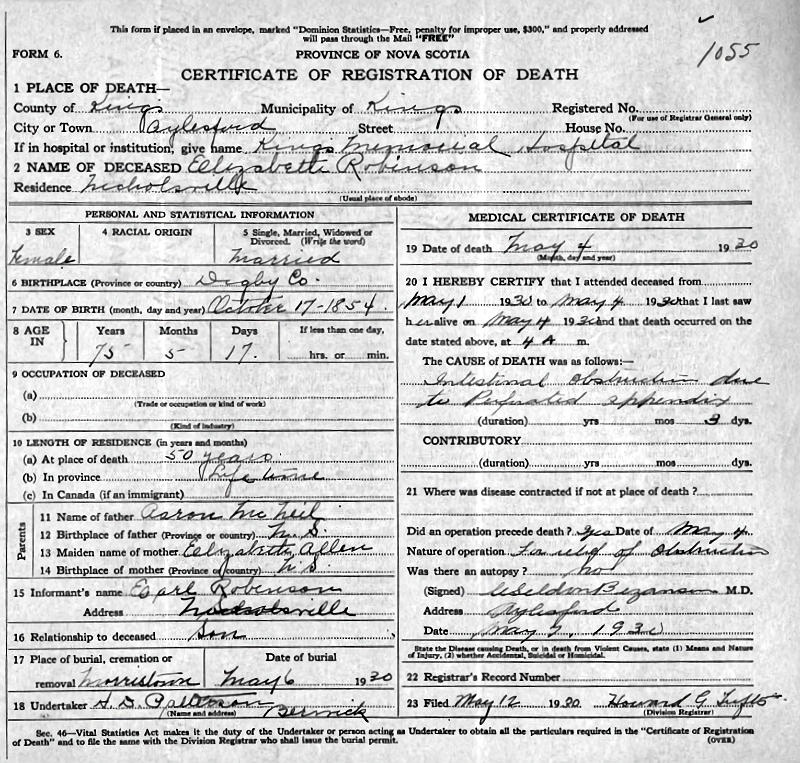 This form if placed in an envelope, marked "Dominion Statistics—Free, penalty for improper use, $300," and properly addressed
will pass through the Mail "FREE"
1055
FORM 6.
PROVINCE OF NOVA SCOTIA
CERTIFICATE OF REGISTRATION OF DEATH
1 PLACE OF DEATH—
County of Kings Municipality of Kings Registered No.
(For use of Registrar General only)
City or Town Aylesford Street House No.
If in hospital or institution, give name Kings Memorial Hospital
2 NAME OF DECEASED Elizabeth Robinson
Residence Nicholsville
(Usual place of abode)
PERSONAL AND STATISTICAL INFORMATION
3 SEX 4 RACIAL ORIGIN 5 Single, Married, Widowed or
Divorced. (Write the word)
Female Married
6 BIRTHPLACE (Province or country) Digby Co.
7 DATE OF BIRTH (month, day and year) October 17-1854
8 AGE IN Years Months Days If less than one day,
75 5 17. hrs. or min.
9 OCCUPATION OF DECEASED
(a)
(Trade or occupation or kind of work)
(b)
(Kind of industry)
10 LENGTH OF RESIDENCE (in years and months)
(a) At place of death 50 years
(b) In province Life time
(c) In Canada (if an immigrant)
Parents
11 Name of father Aaron McNeil
12 Birthplace of father (Province or country) N.S.
13 Maiden name of mother Elizabeth Allen
14 Birthplace of mother (Province or country) N.S.
15 Informant's name Earl Robinson
Address Nicholsville
16 Relationship to deceased Son
17 Place of burial, cremation or Date of burial
removal Morristown May 6 1930
18 Undertaker H. D. Patterson
(Name and address) Berwick
MEDICAL CERTIFICATE OF DEATH
19 Date of death May 4 1930
(Month, day and year)
20 I HEREBY CERTIFY that I attended deceased from
May 1 1930 to May 4 1930 that I last saw
her alive on May 4 1930 and that death occurred on
date stated above, at 4 A m.
The CAUSE of DEATH was as follows:—
Intestinal obstruction due
to Perforated appendix
(duration) yrs mos 3 dys.
CONTRIBUTORY
(duration) yrs mos dys.
21 Where was disease contracted if not at place of death?
Did an operation precede death? yes Date of May 4
Nature of operation For relief of Obstruction
Was there an autopsy? no
(Signed) Bezanson M.D.
Address Aylesford
Date May 7, 1930
State the Disease causing Death, or in death from Violent Causes, state (1) Means and Nature
of Injury, (2) whether Accidental, Suicidal or Homicidal.
22 Registrar's Record Number
23 Filed May 12 1930 Howard G
(Division Registrar)
Sec. 46—Vital Statistics Act makes it the duty of the Undertaker or person acting as Undertaker to obtain all the particulars required in the "Certificate of Registration
of Death" and to file the same with the Division Registrar who shall issue the burial permit. (OVER)